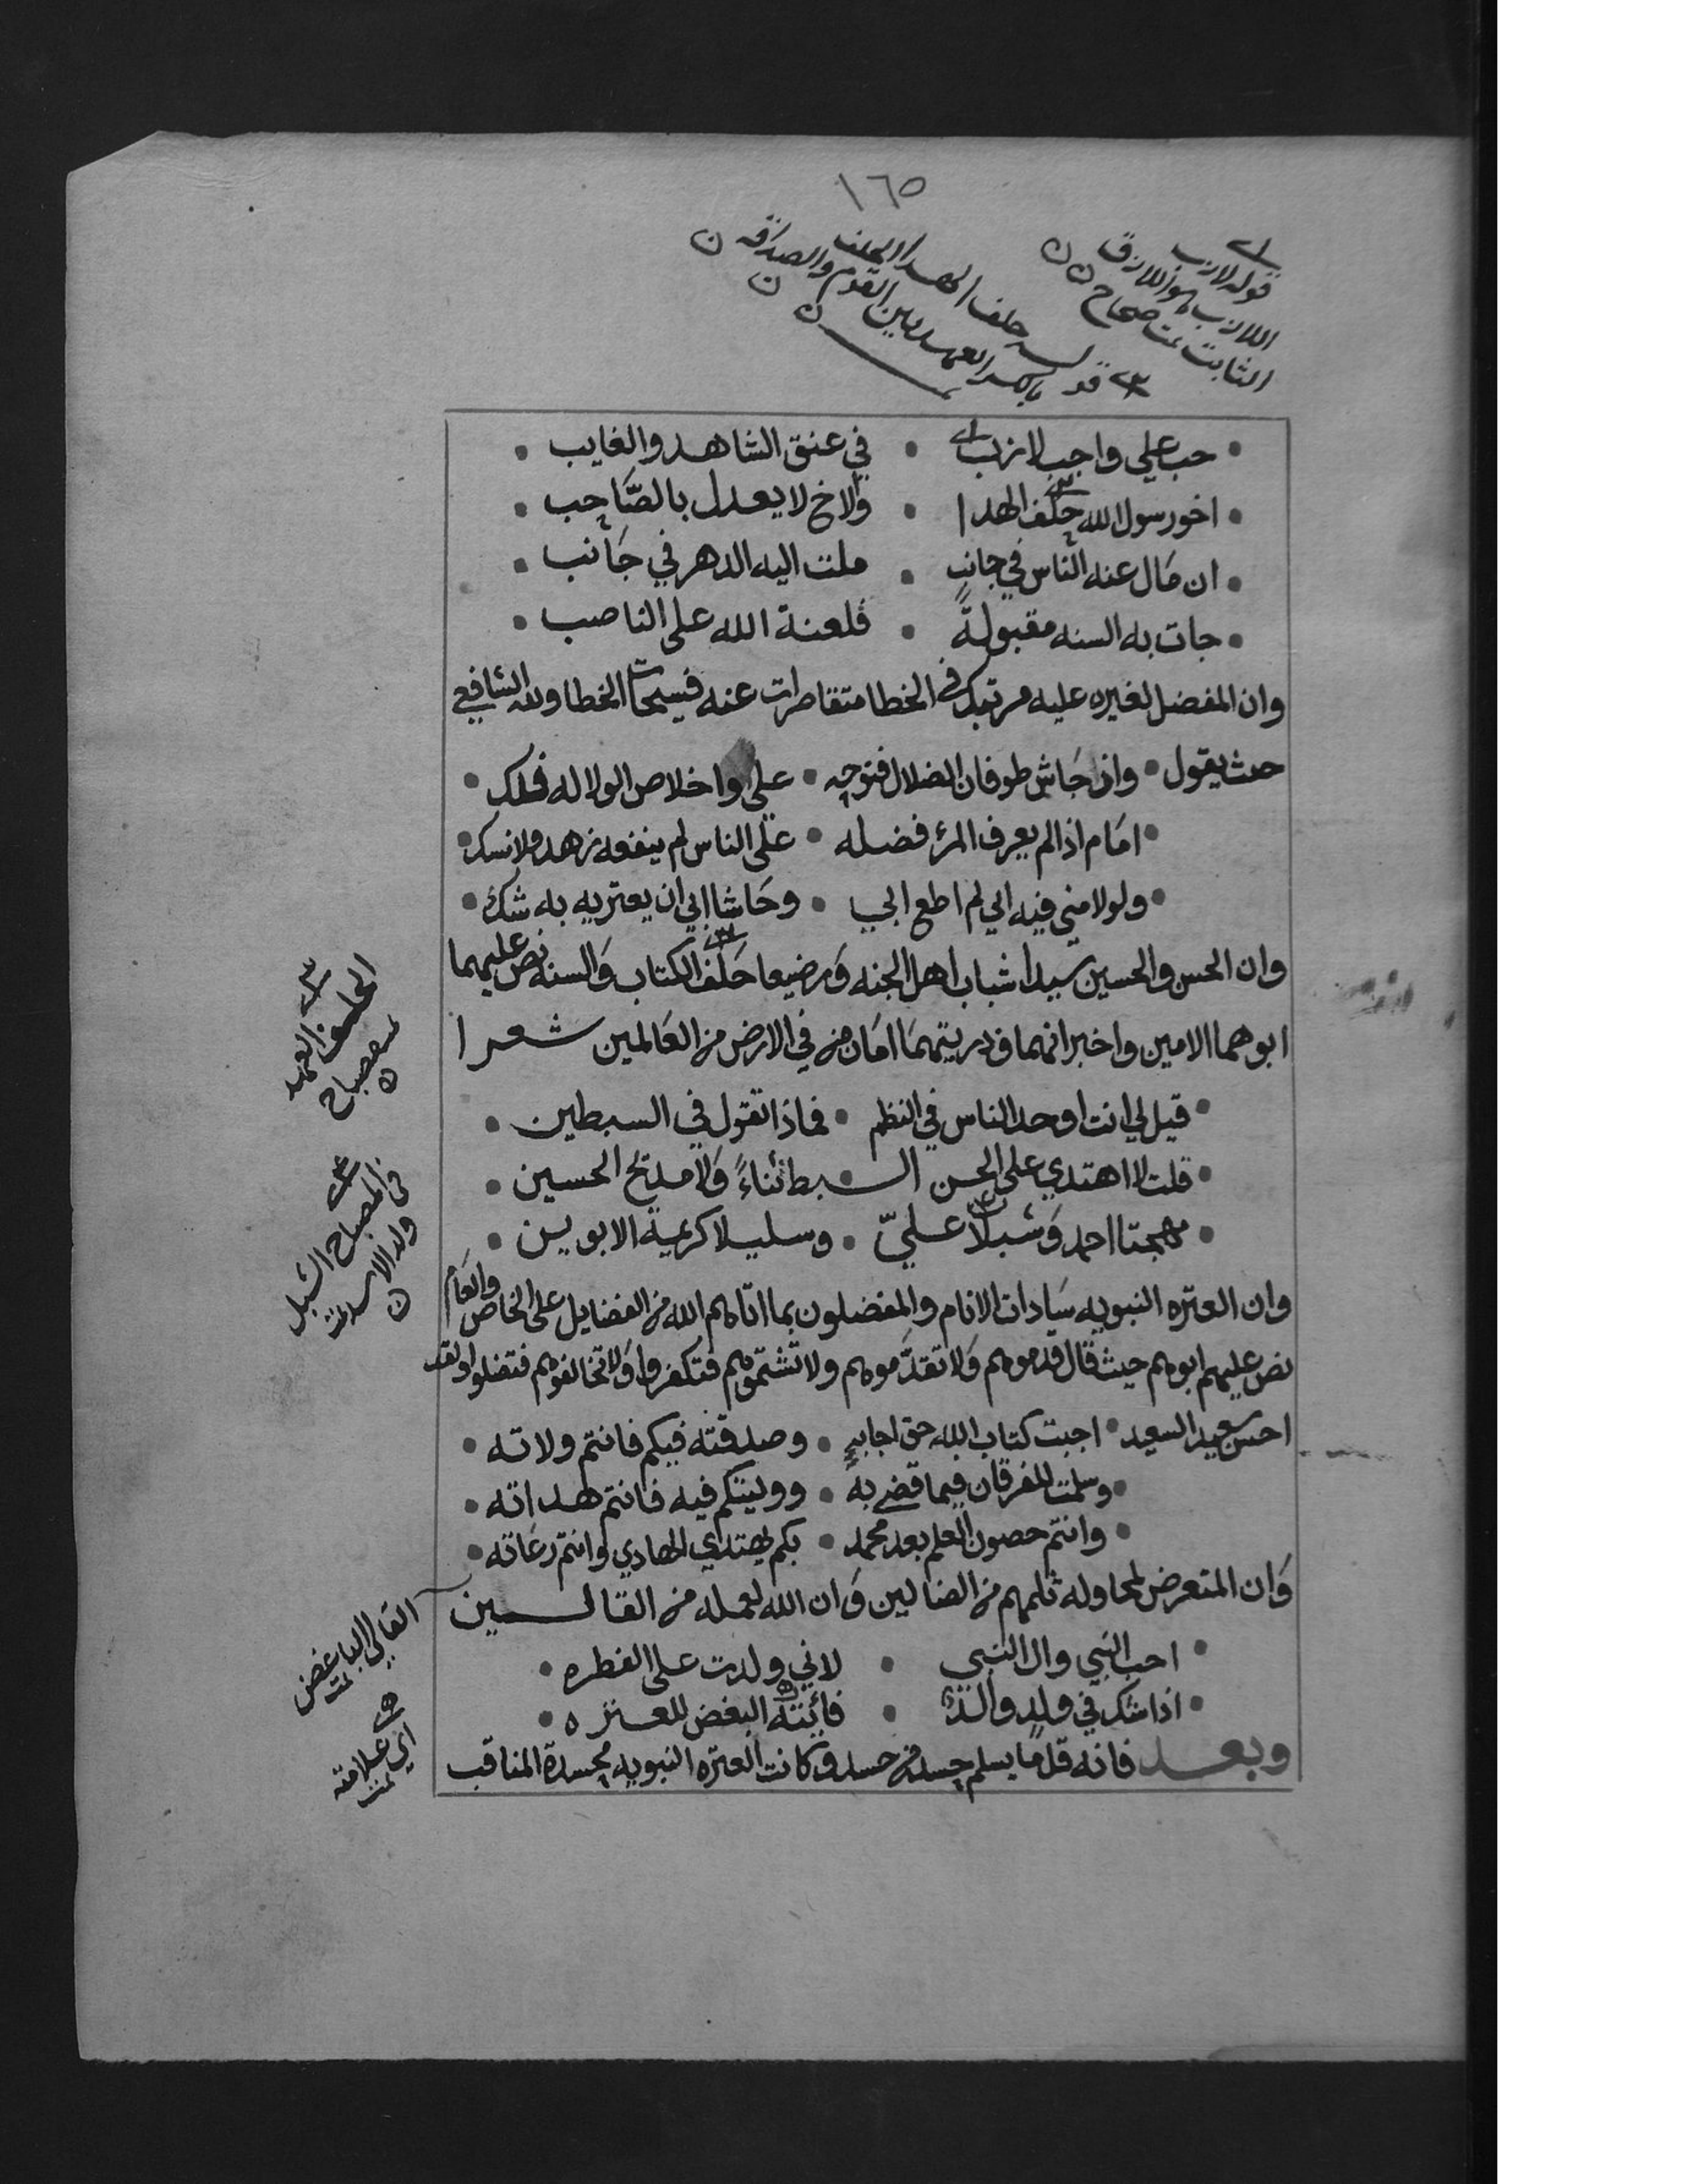 ١٦٥
قوله لازب
اللازب هو اللازق
الثابت تمت صحاح
حلف الهدا الحلف
بالكسر العهد بين القوم والصداقه
حب علي واجب لازب • في عنق الشاهد والغايب
اخو رسول الله حلف الهدا • والاخ لا يعدل بالصاحب
ان مال عنه الناس في جانب • ملت اليه الدهر في جانب
جات به السنه مقبولةً • فلعنة الله على الناصب
وان المفضل لغيره عليه مرتبك في الخطا متقاصرات عنه فسيحات الخطا ولله الشافعي
حيث يقول • واذ جاش طوفان الضلال فنوحه • علي واخلاص الولا له فلك
امام اذا لم يعرف المرء فضله • على الناس لم ينفعه زهد ولا نسك
ولولا مني فيه ابي لم اطع ابي • وحاشا ابي ان يعتريه به شك
وان الحسن والحسين سيدا شباب اهل الجنه ورضيعا حلف الكتاب والسنه نص عليهما
ابوهما الامين واخبر انهما وذريتهما امان من في الارض من العالمين شعرا
قيل لي انت اوحد الناس في النظم • فماذا تقول في السبطين
قلت لا اهتدي على الحسن السبط ثناءً ولا مديح الحسين
مهجتا احمد وشبلا عليّ • وسليلا كريمة الابوين
وان العتره النبويه سادات الانام والمفضلون بما اتاهم الله من الفضايل على الخاص والعام
نص عليهم ابوهم حيث قال قدموهم ولا تقدّموهم ولا تشتموهم فتكفروا ولا تخالفوهم فتضلوا ولقد
احسن سعيد السعيد • اجبت كتاب الله حق اجابةٍ • وصدقته فيكم فانتم ولاته
وسلمت للفرقان فيما قضى به • ووليتكم فيه فانتم هداته
وانتم حصون العلم بعد محمد • بكم يهتدي الهادي وانتم رعاته
وان المتعرض لمحاوله ثلمهم من الضالين وان الله لعمله من القالين
احب النبي وال النبي • لاني ولدت على الفطره
اذا شك في ولد والد • فائيته البغض للعتره
وبعد فانه قل ما يسلم جسد من حسد وكانت العتره النبويه محسدة المناقب
الحلف العهد
مصباح
في المصباح الشبل
ولد الاسد تمت
القالي الباغض
تمت
اي علامته
تمت